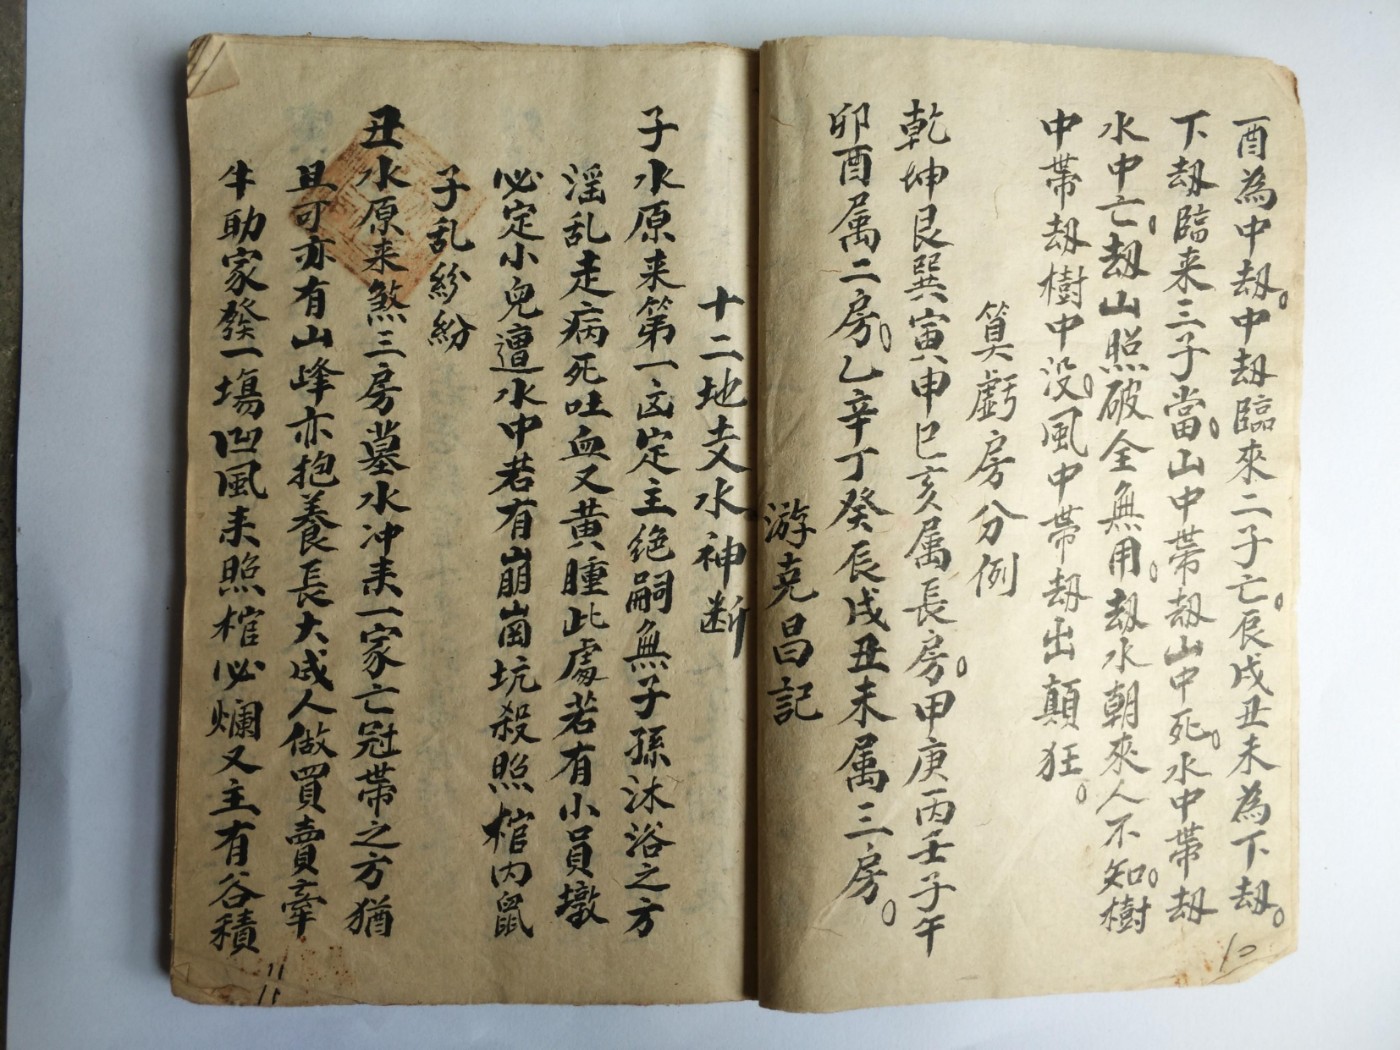 酉為中刼。中刼臨來二子亡。辰戌丑未為下刼。
下刼臨来三子當。山中帶刼山中死。水中帶刼
水中亡。刼山照破全無用。刼水朝來人不知。樹
中帶刼樹中没。風中帶刼出顛狂。
算虧房分例
乾坤艮巽寅申巳亥属長房。甲庚丙壬子午
卯酉属二房。乙辛丁癸辰戌丑未属三房。
游克昌記
十二地支水神断
子水原来第一凶定主绝嗣無子孫沐浴之方
淫乱走病死吐血又黄腫此處若有小員墩
必定小兒遭水中若有崩崗坑殺照棺内鼠
子乱紛紛
丑水原来煞三房墓水冲来一家亡冠帶之方猶
且可亦有山峰亦抱養長大成人做買賣牽
牛助家發一塲凹風来照棺必爛又主有谷積
10
11